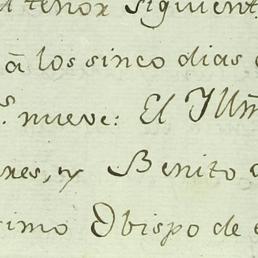 tenor siguient
à los sinco dias
s nueve: El Illm
res, y Benito
simo Obispo de